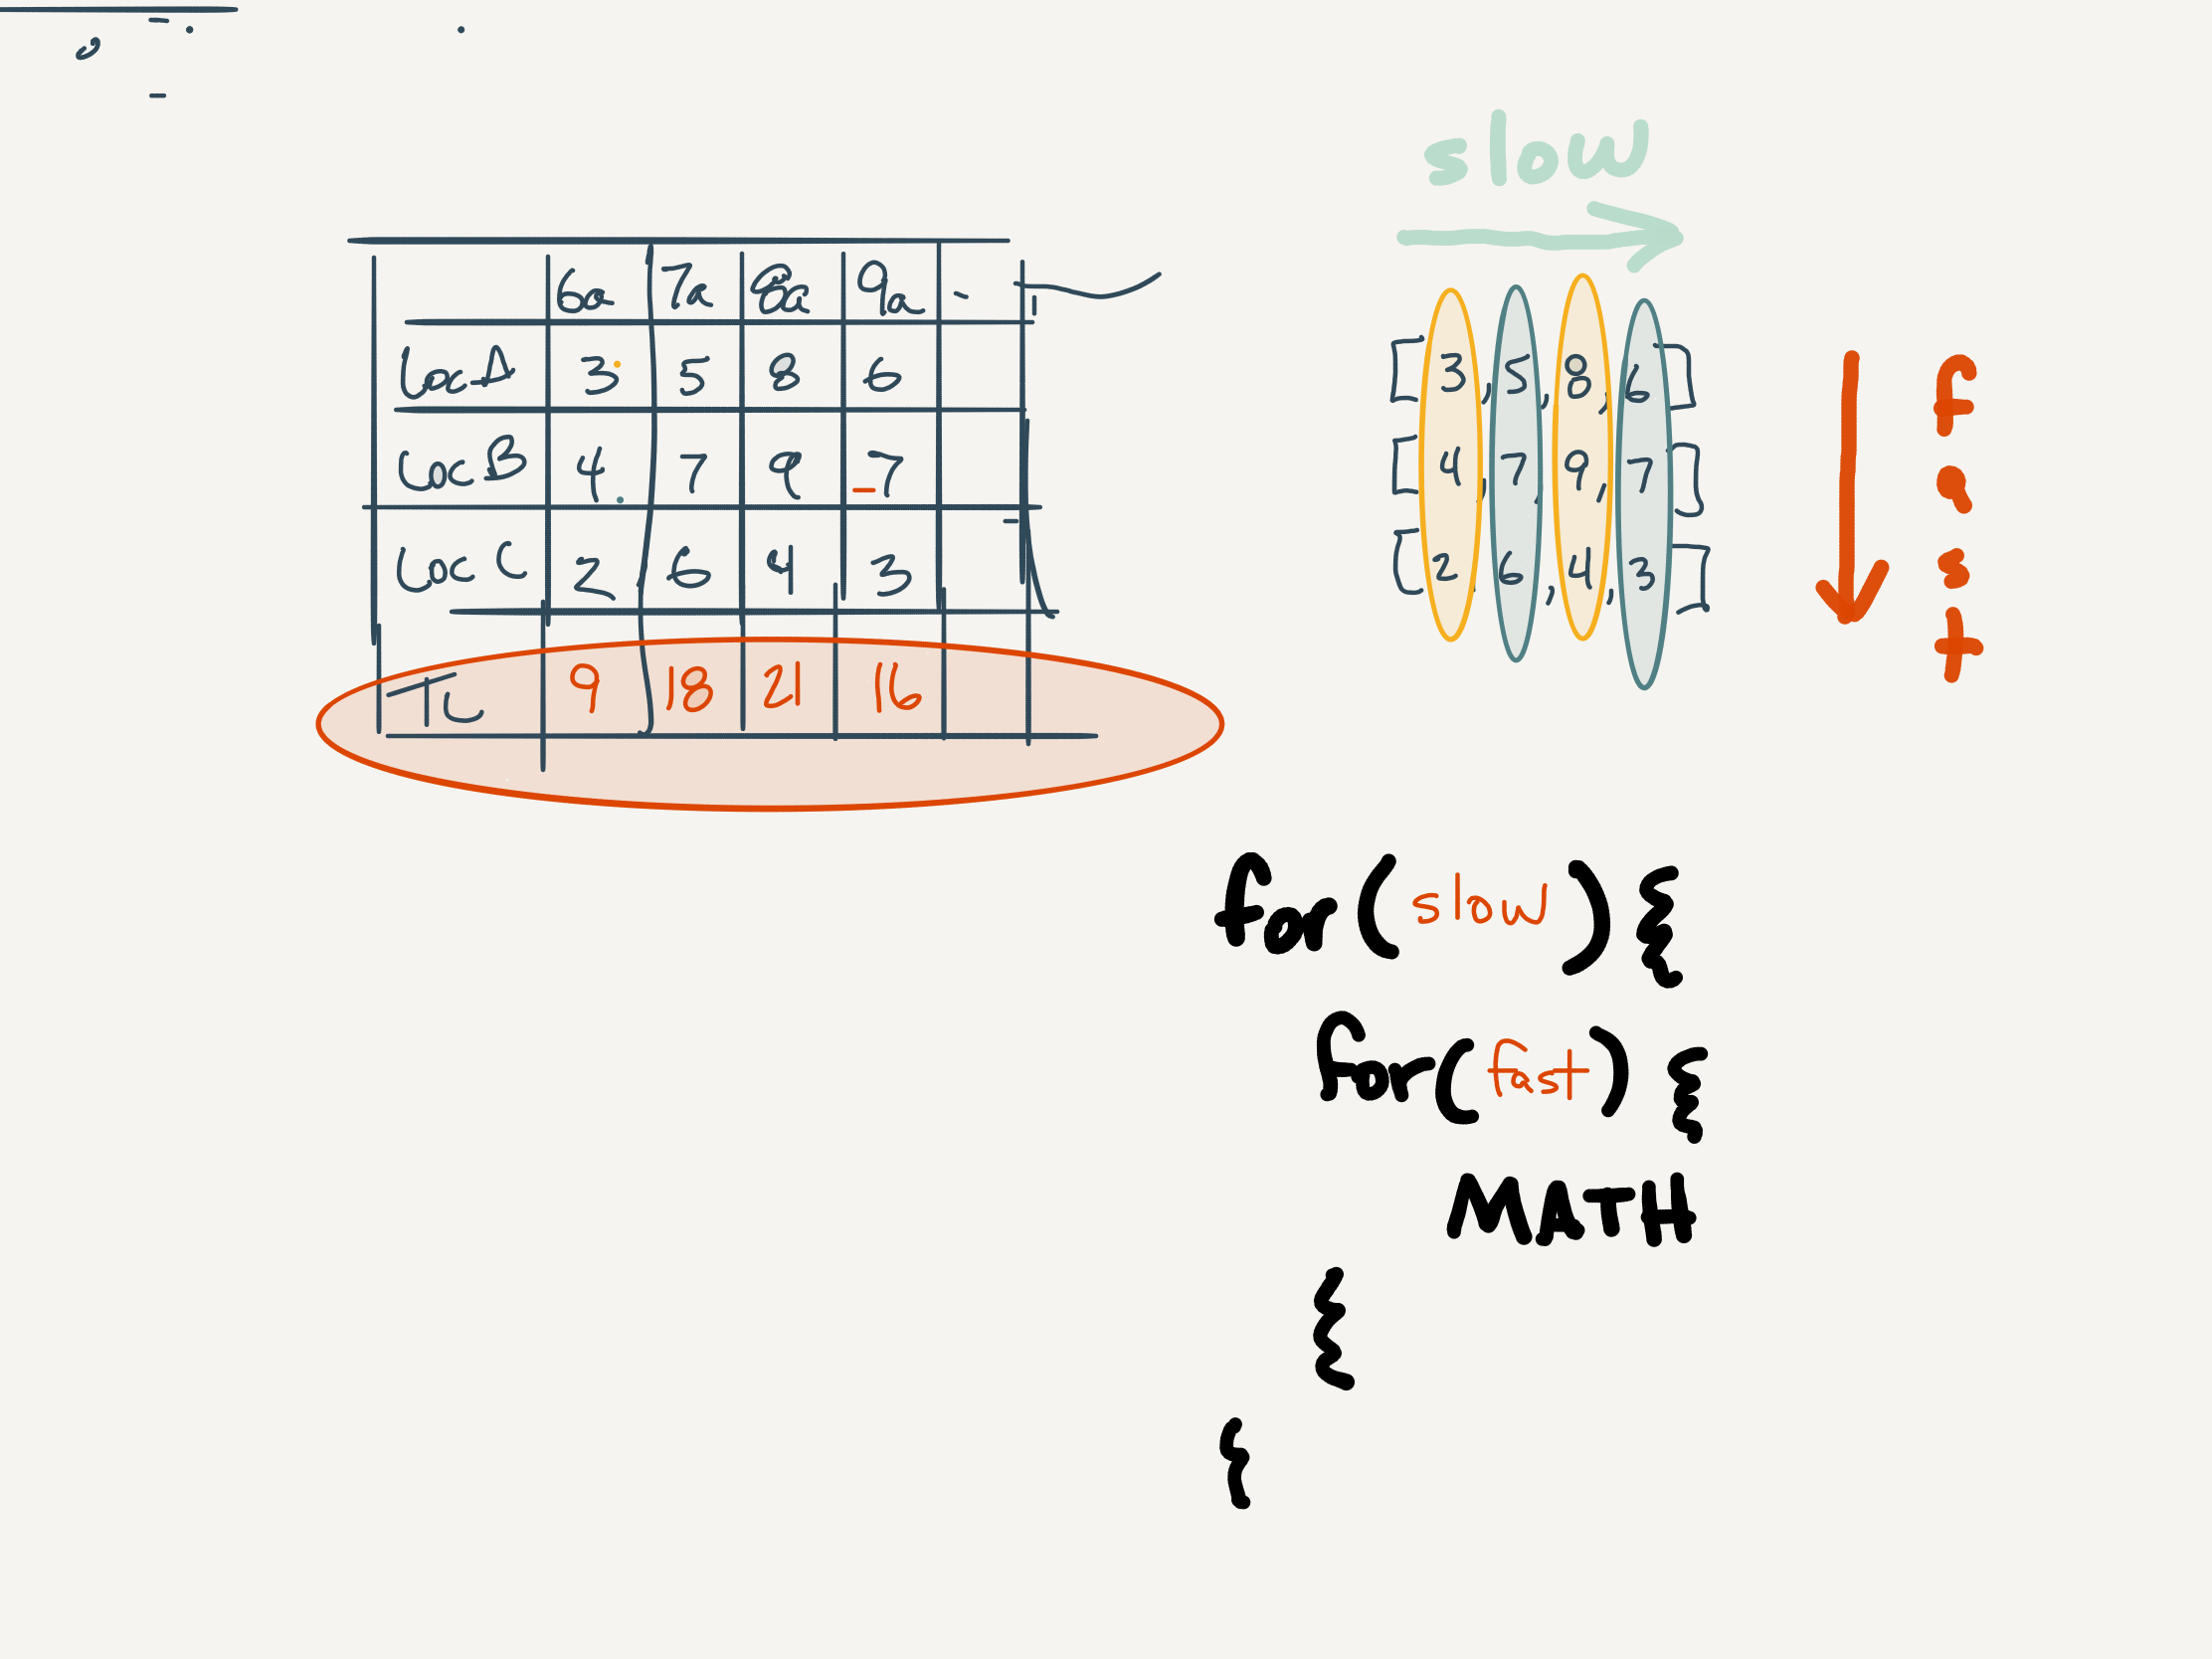 6a 7a 8a 9a
Loc A 3 5 8 6
Loc B 4 7 9 7
Loc C 2 6 4 3
TL 9 18 21 16
slow
[3,5,8,6]
[4,7,9,7]
[2,6,4,3]
fast
for(slow){
for(fast){
MATH
{
{